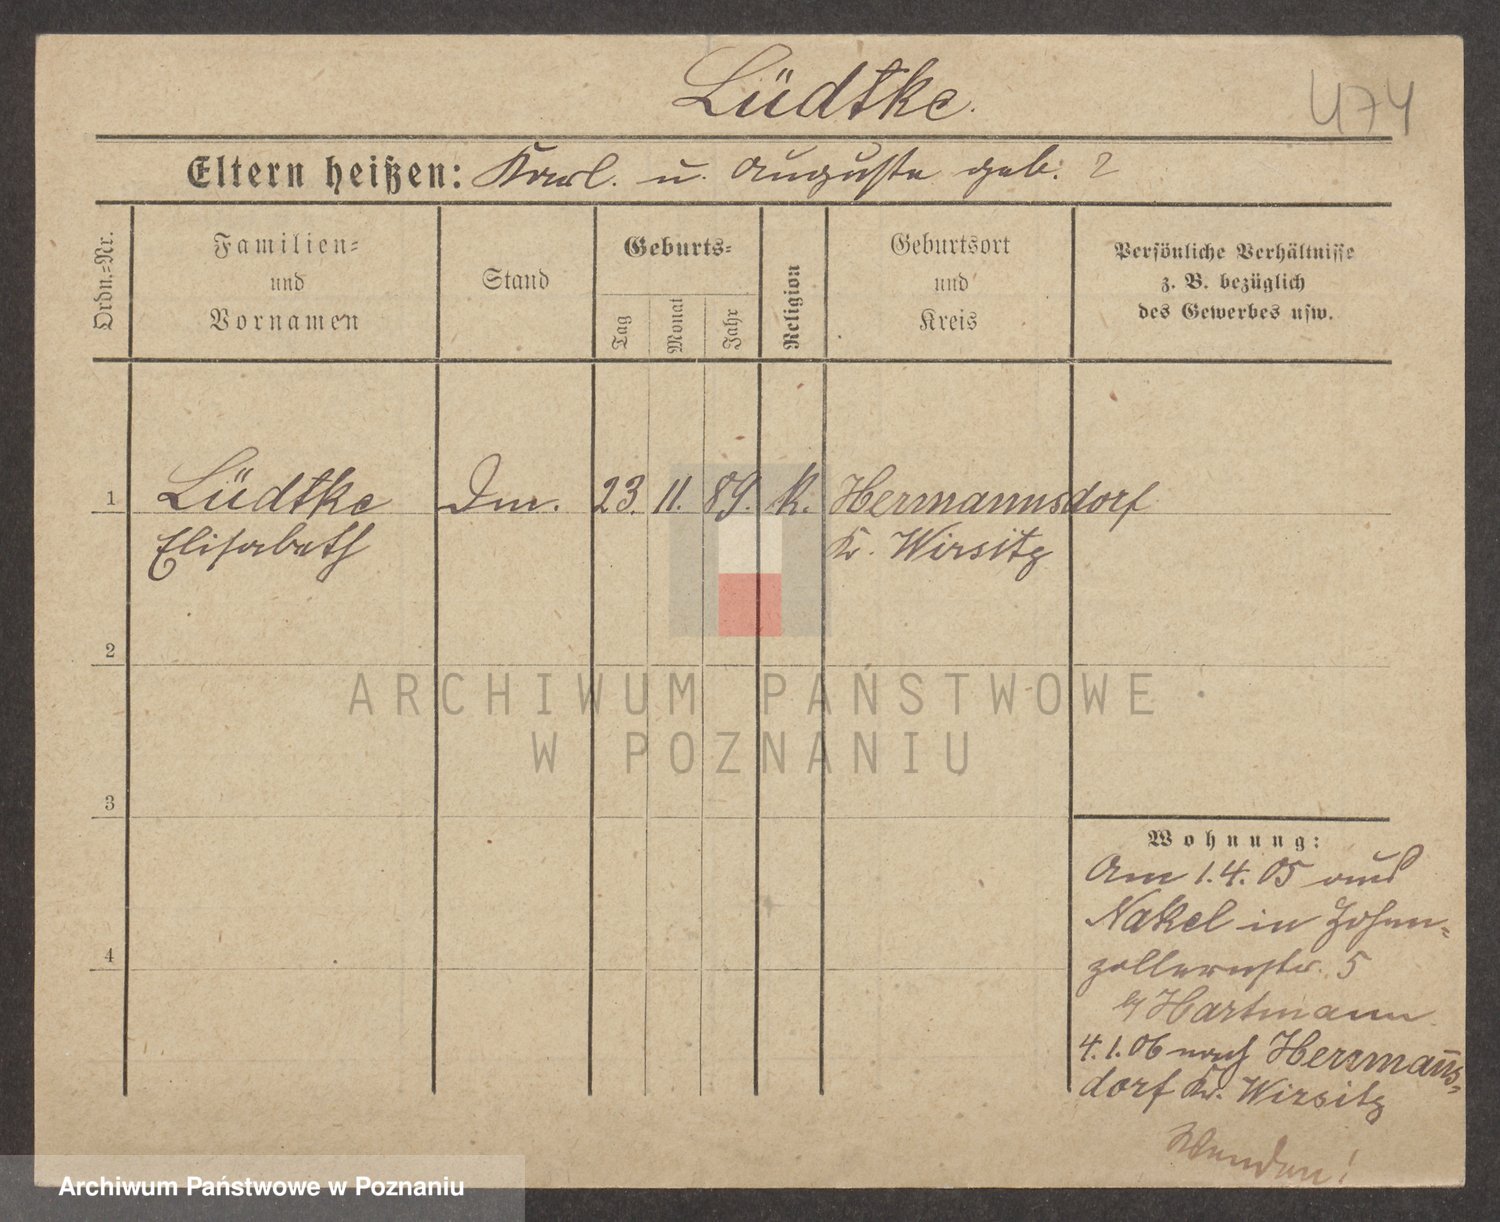 Lüdtke.
474
Eltern heißen: Karl. u. Auguste geb. ?
Ordn.=Nr.
Familien=
und
Vornamen
Stand
Geburts=
Tag
Monat
Jahr
Religion
Geburtsort
und
Kreis
Persönliche Verhältnisse
z. B. bezüglich
des Gewerbes usw.
1 Lüdtke Dm. 23. 11. 89. k. Hermannsdorf
Elisabeth Kr. Wirsitz
2
ARCHIWUM PAŃSTWOWE
W POZNANIU
3
Wohnung:
Am 1.4.05 aus
Nakel in Hohen=
zollernstr. 5
b/ Hartmann.
4.1.06 nach Hermañs=
dorf Kr. Wirsitz
Wenden!
4
Archiwum Państwowe w Poznaniu